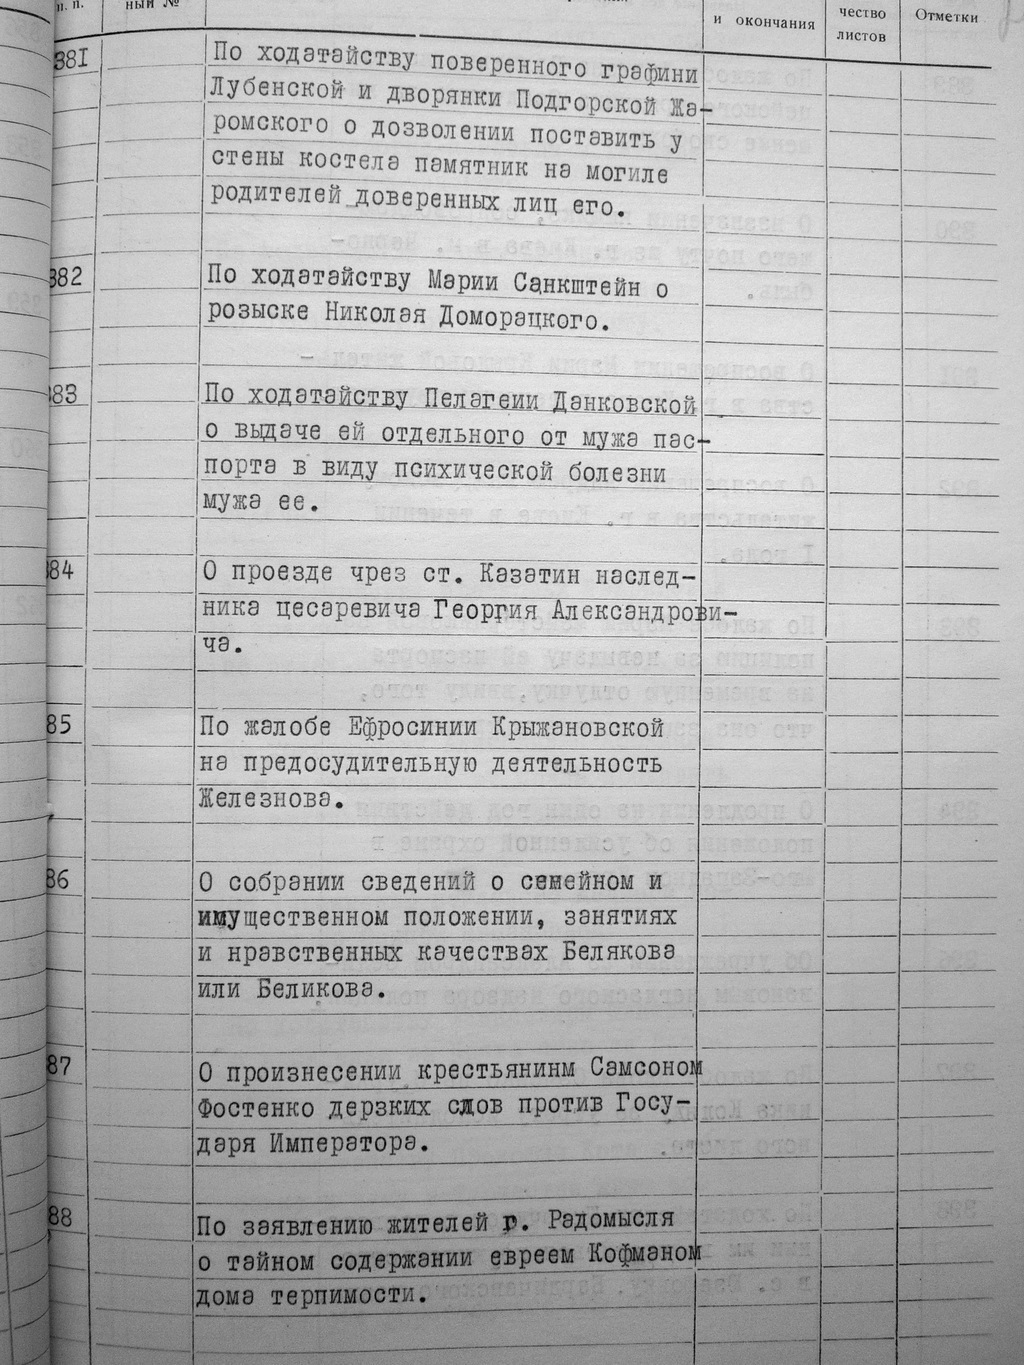 п. п.
ный №
и окончания
чество
листов
Отметки
381
По ходатайству поверенного графини
Лубенской и дворянки Подгорской Жа-
ромского о дозволении поставить у
стены костела памятник на могиле
родителей доверенных лиц его.
382
По ходатайству Марии Санкштейн о
розыске Николая Доморацкого.
383
По ходатайству Пелагеии Данковской
о выдаче ей отдельного от мужа пас-
порта в виду психической болезни
мужа ее.
384
О проезде чрез ст. Казатин наслед-
ника цесаревича Георгия Александрови-
ча.
85
По жалобе Ефросинии Крыжановской
на предосудительную деятельность
Железнова.
86
О собрании сведений о семейном и
имущественном положении, занятиях
и нравственных качествах Белякова
или Беликова.
87
О произнесении крестьянинм Самсоном
Фостенко дерзких слов против Госу-
даря Императора.
88
По заявлению жителей г. Радомысля
о тайном содержании евреем Кофманом
дома терпимости.